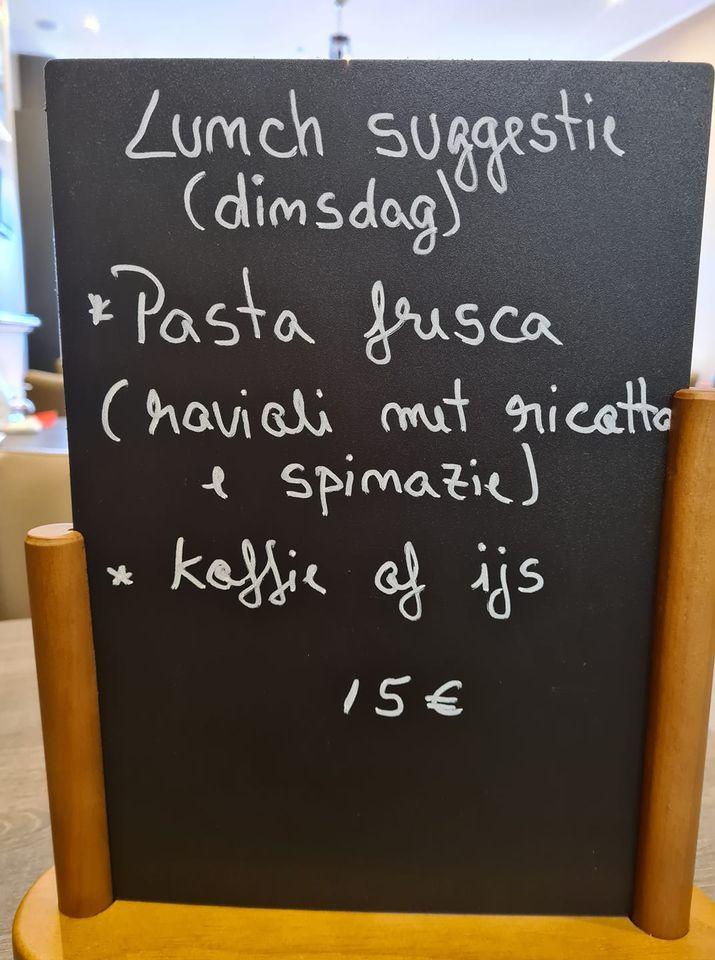 Lunch suggestie
(dinsdag)
*Pasta frisca
(ravioli met ricotta
e spinazie)
* koffie of ijs
15€